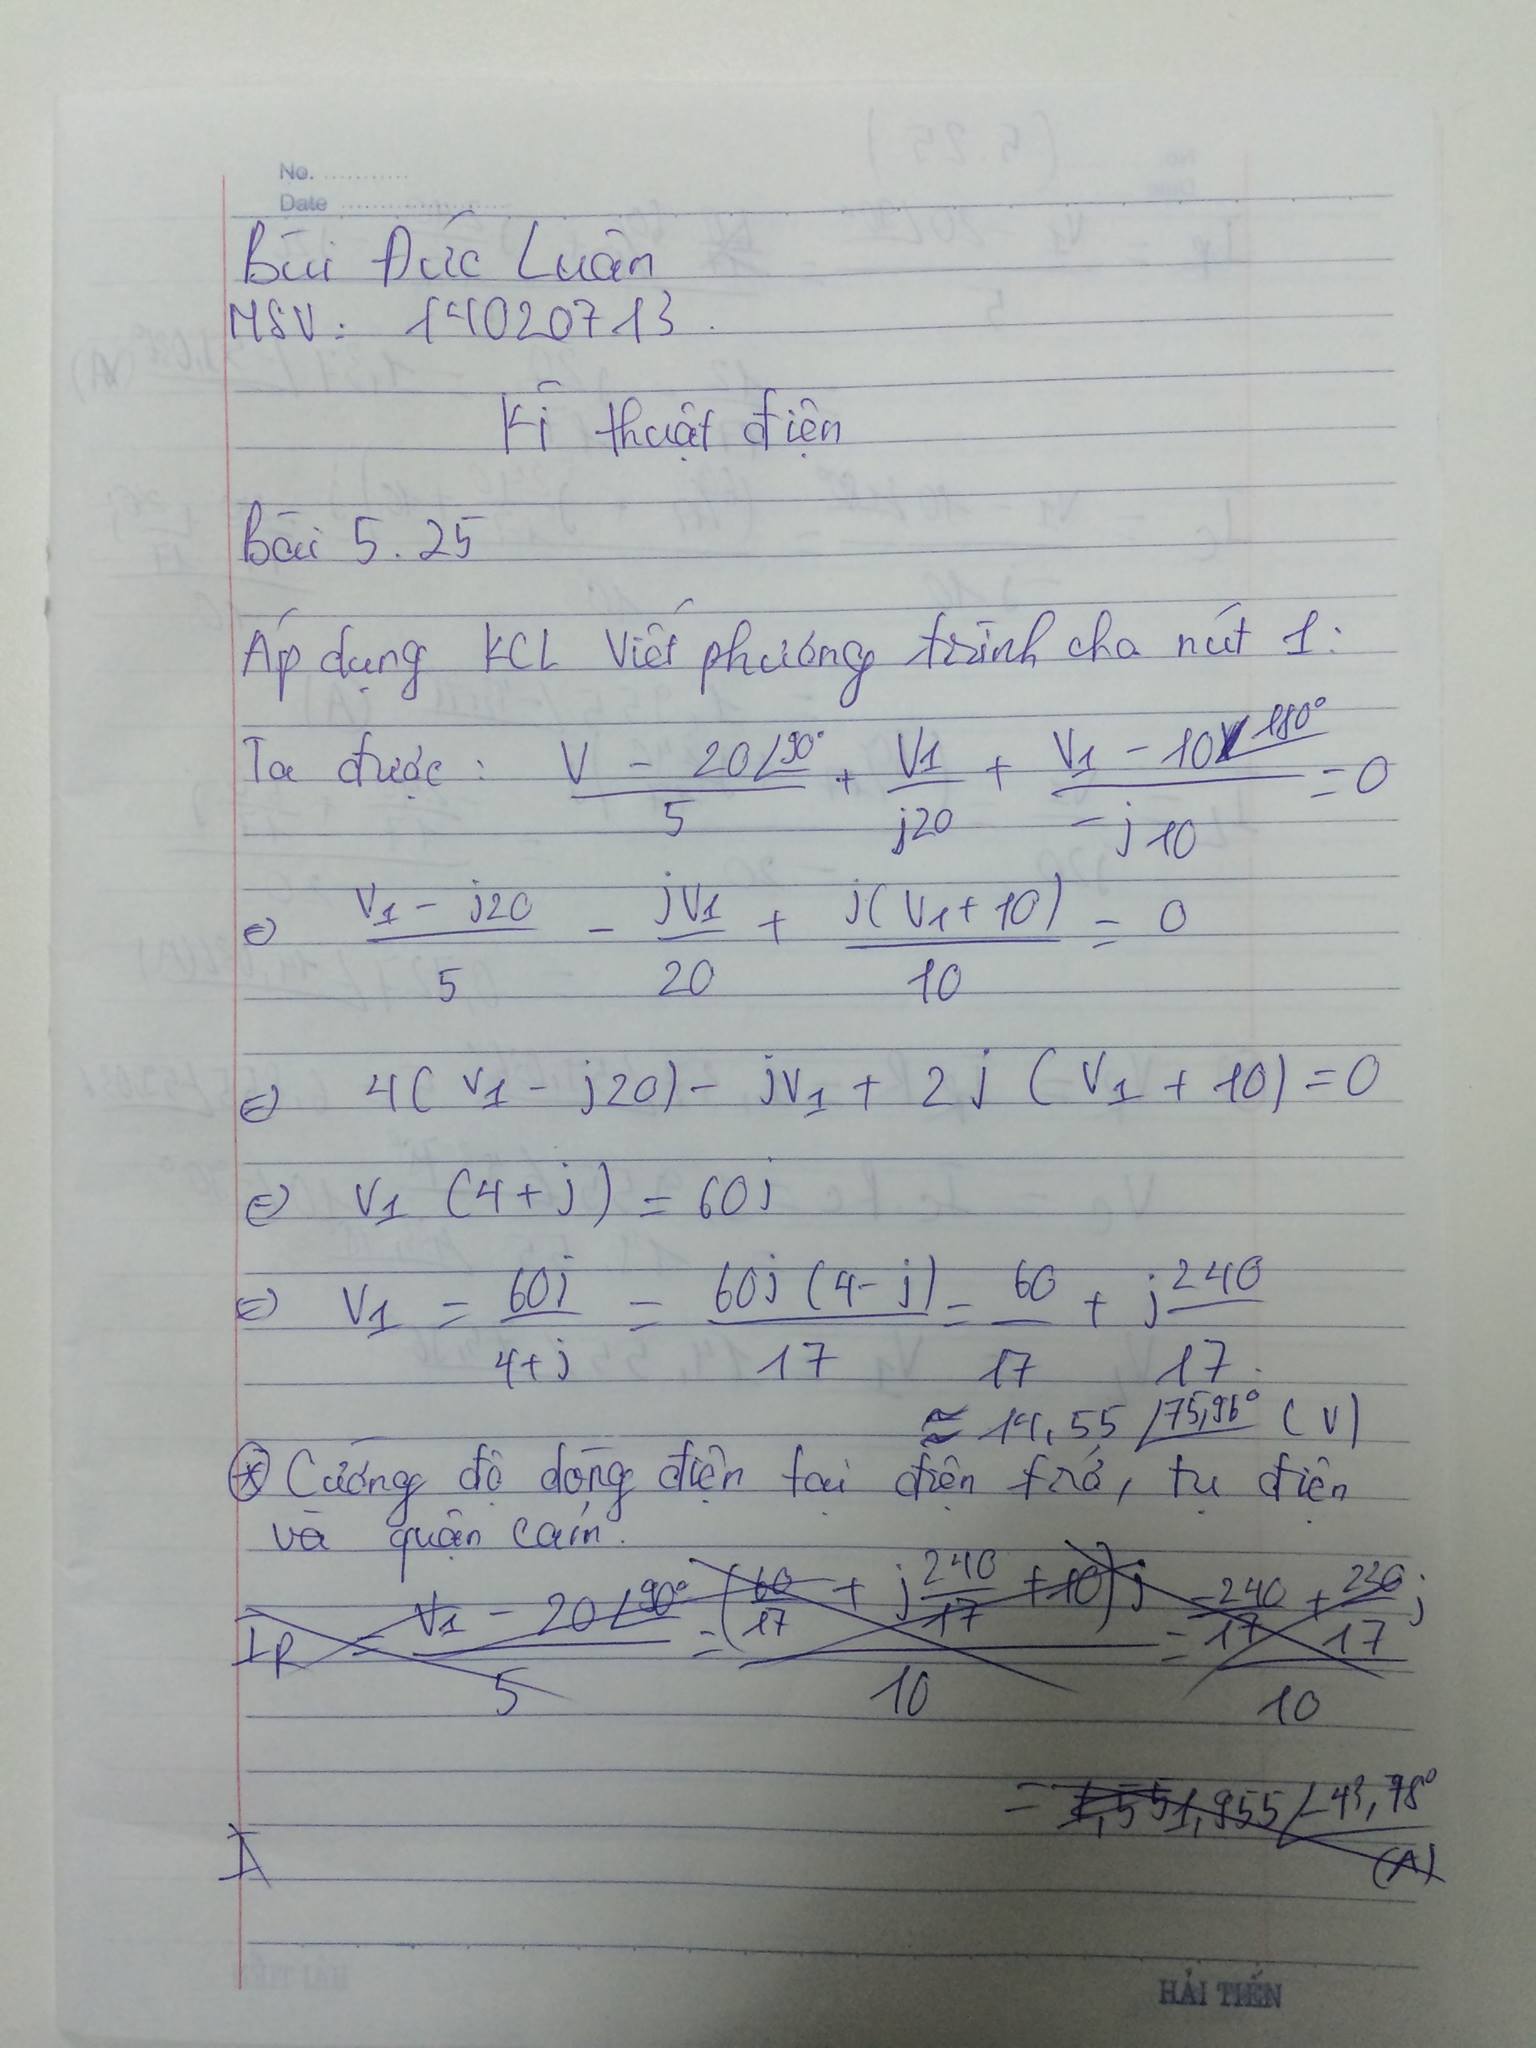 No. ............
Date ........................
Bùi Đức Luân
MSV: 14020713.
Kĩ thuật điện
Bài 5.25
Áp dụng KCL viết phương trình cho nút 1:
Ta được: (V - 20∠90°)/5 + V1/j20 + (V1 - 10∠180°)/(-j10) = 0
⇔ (V1 - j20)/5 - jV1/20 + j(V1 + 10)/10 = 0
⇔ 4(V1 - j20) - jV1 + 2j(V1 + 10) = 0
⇔ V1 (4 + j) = 60j
⇔ V1 = 60j/(4+j) = 60j(4-j)/17 = 60/17 + j 240/17.
≈ 14,55 ∠75,96° (V)
⊛ Cường độ dòng điện tại điện trở, tụ điện
và quận cảm.
IR = (V1 - 20∠90°)/5 = (60/17 + j 240/17 + 10)j/10 = (-240/17 + 230/17 j)/10
= 1,955∠-43,78°
(A)
I
HẢI TIẾN